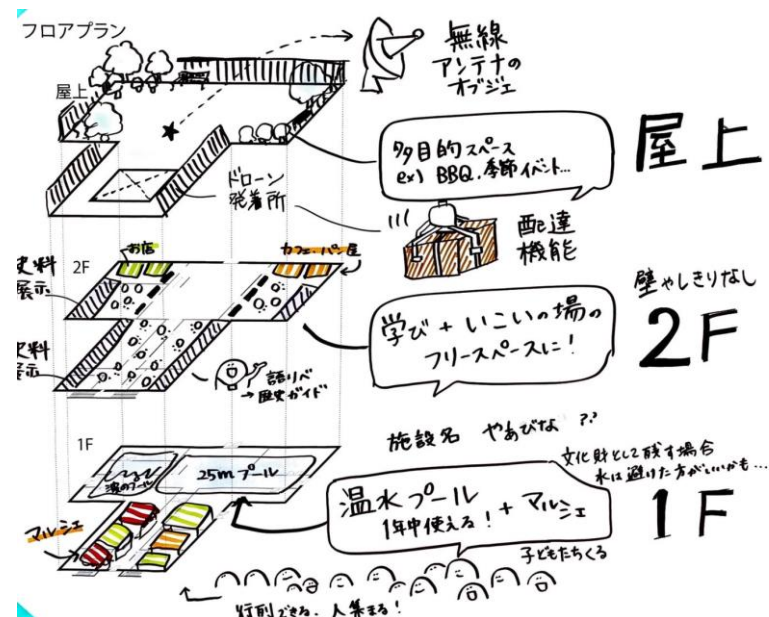 フロアプラン
屋上
無線
アンテナの
オブジェ
多目的スペース
ex) BBQ、季節イベント…
屋上
ドローン
発着所
配達
機能
2F
お店
カフェ・パン屋
史料
展示
史料
展示
語りべ
→歴史ガイド
学び + いこいの場の
フリースペースに!
壁やしきりなし
2F
1F
施設名 やあびな ??
文化財として残す場合
水は避けた方がいいかも…
25mプール
マルシェ
温水プール
1年中使える! + マルシェ
1F
子どもたちくる
行列できる、人集まる!